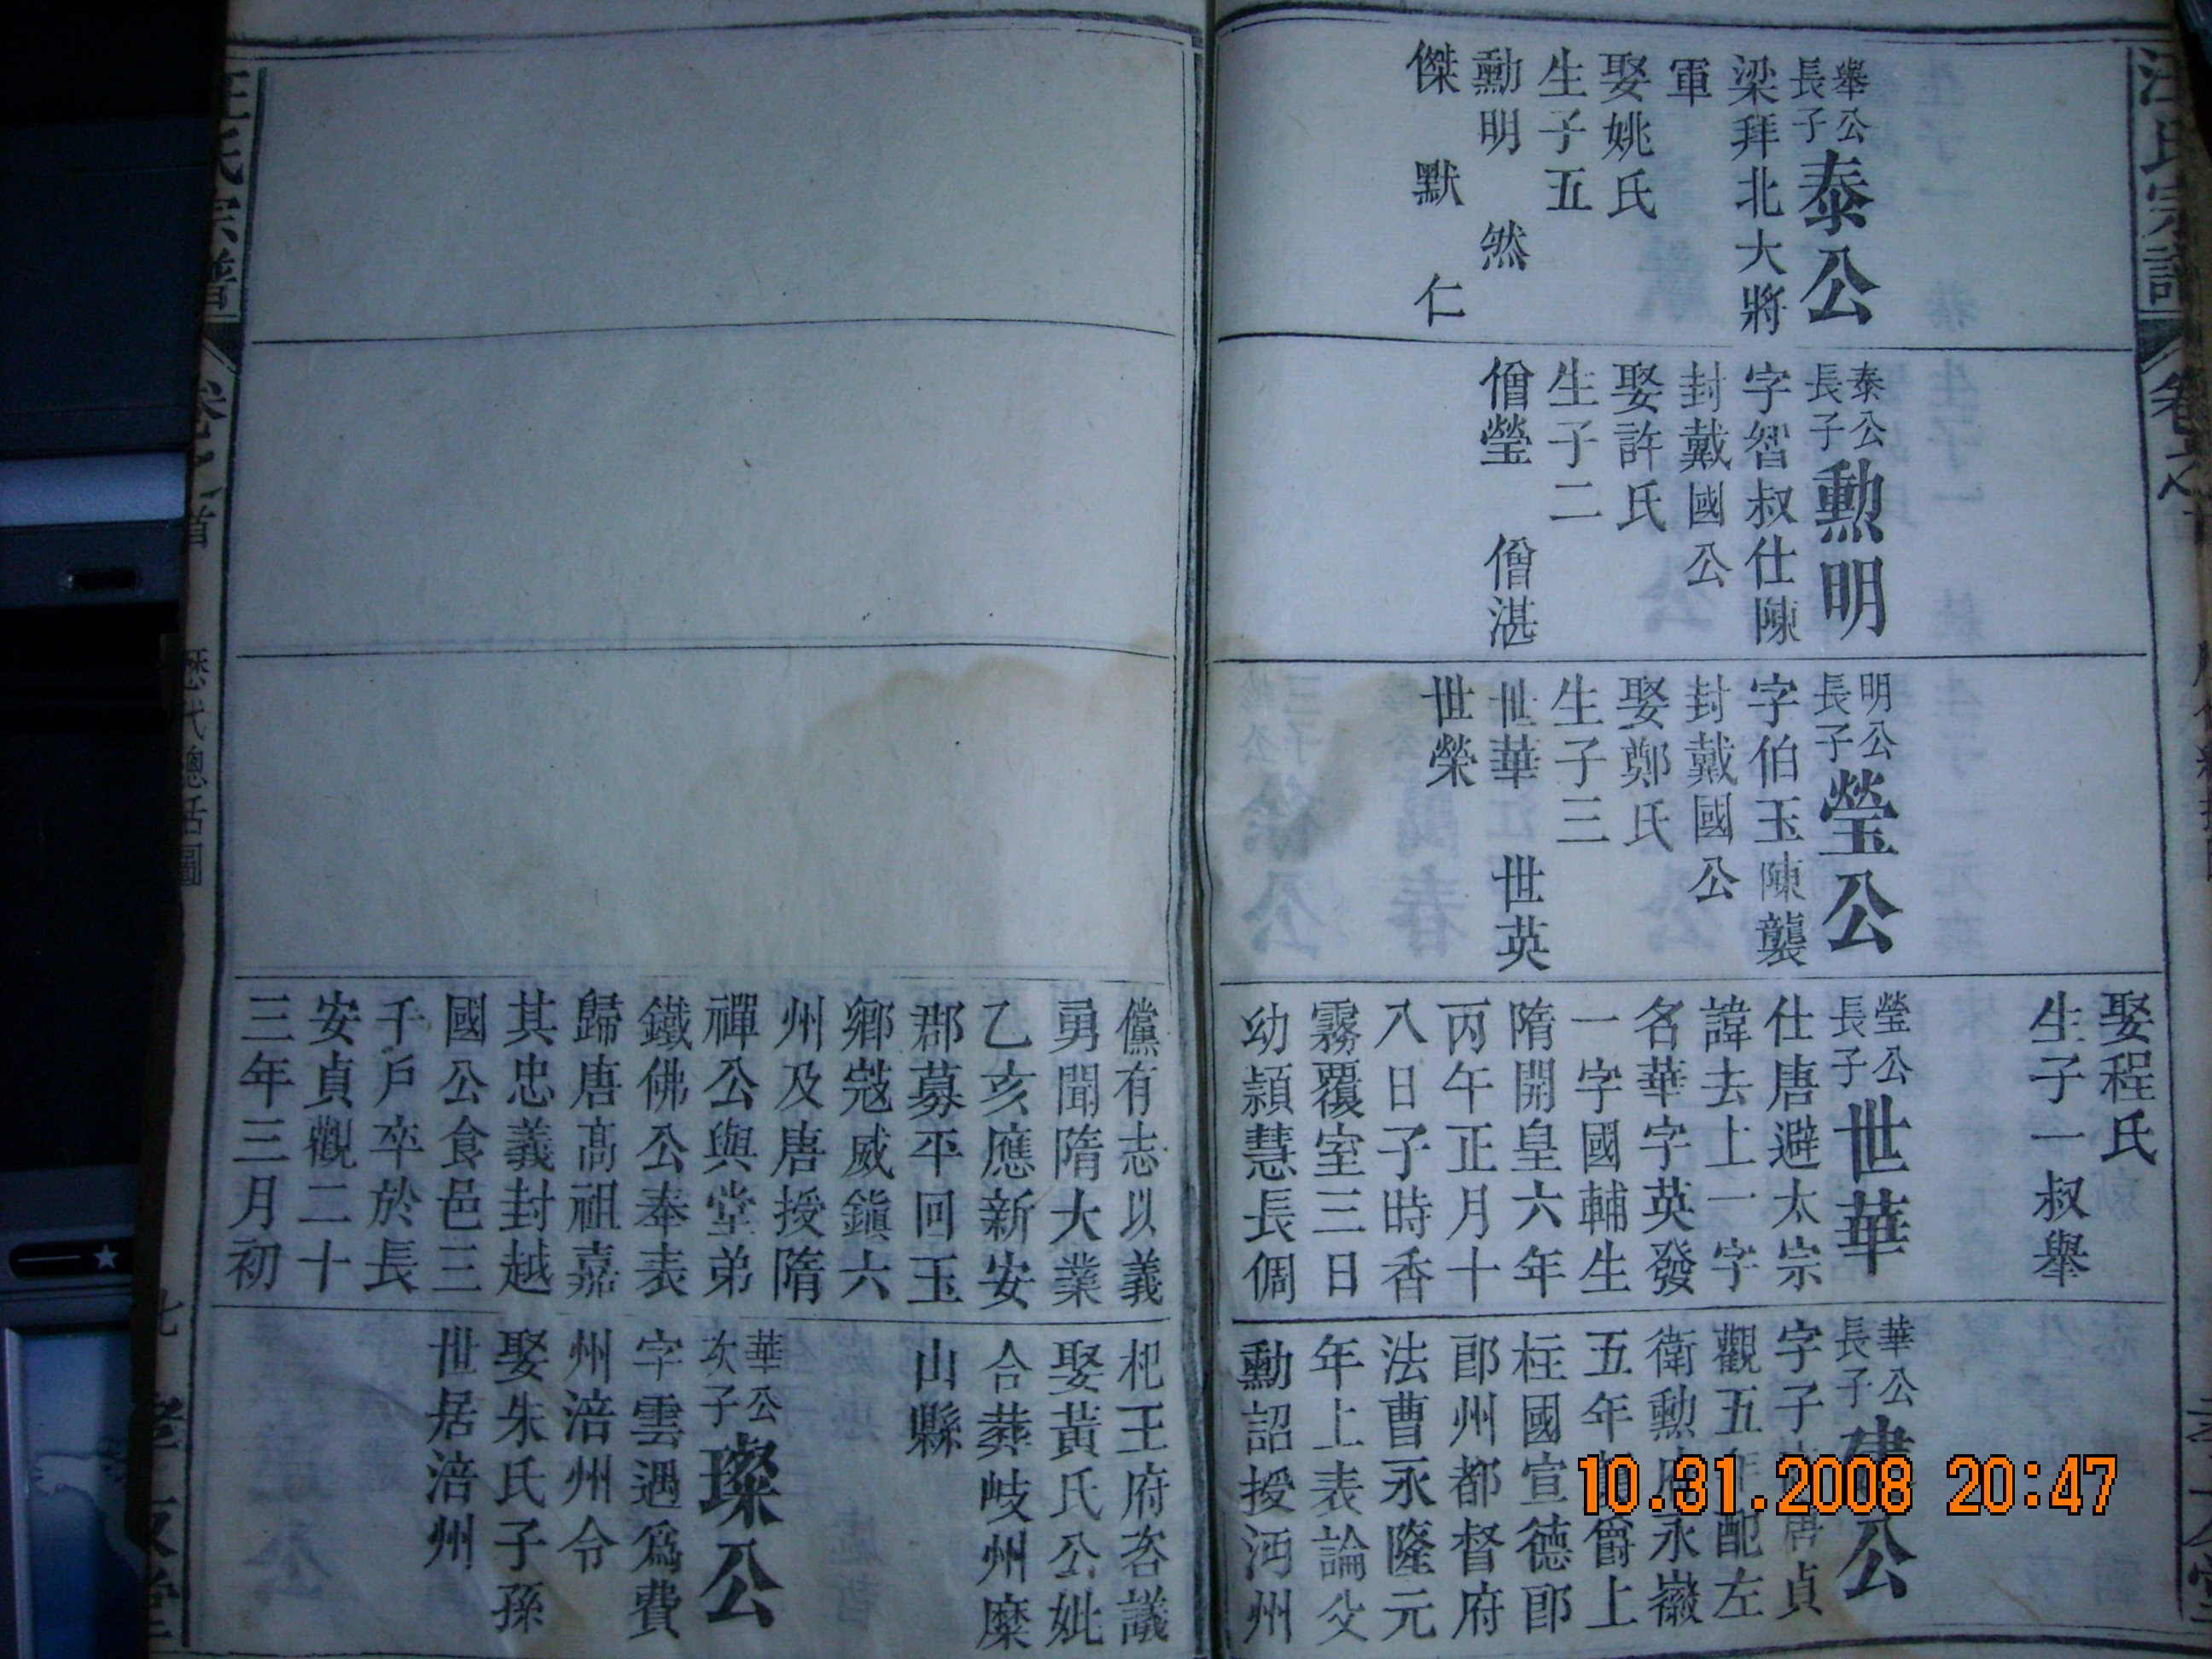 汪氏宗譜
卷之
娶程氏
生子一叔舉
舉公
長子
泰公
梁拜北大將
軍
娶姚氏
生子五
勳明 然
傑 默 仁
泰公
長子
勲明
字智叔仕陳
封戴國公
娶許氏
生子二
僧瑩 僧湛
明公
長子
瑩公
字伯玉陳襲
封戴國公
娶鄭氏
生子三
世華 世英
世榮
瑩公
長子
世華
仕唐避太宗
諱去上一字
名華字英發
一字國輔生
隋開皇六年
丙午正月十
八日子時香
霧覆室三日
幼穎慧長倜
儻有志以義
勇聞隋大業
乙亥應新安
郡募平回玉
鄉寇威鎮六
州及唐授隋
禪公與堂弟
鐵佛公奉表
歸唐高祖嘉
其忠義封越
國公食邑三
千戶卒於長
安貞觀二十
三年三月初
華公
長子
建公
字子 唐貞
觀五年配左
衛勲 永徽
五年 爵上
柱國宣德郎
郎州都督府
法曹永隆元
年上表論父
勳詔授沔州
杞王府咨議
娶黃氏公妣
合葬岐州麇
山縣
華公
次子
璨公
字雲遇爲費
州涪州令
娶朱氏子孫
世居涪州
汪氏宗譜
卷之首
歷代總括圖
七
10.31.2008 20:47